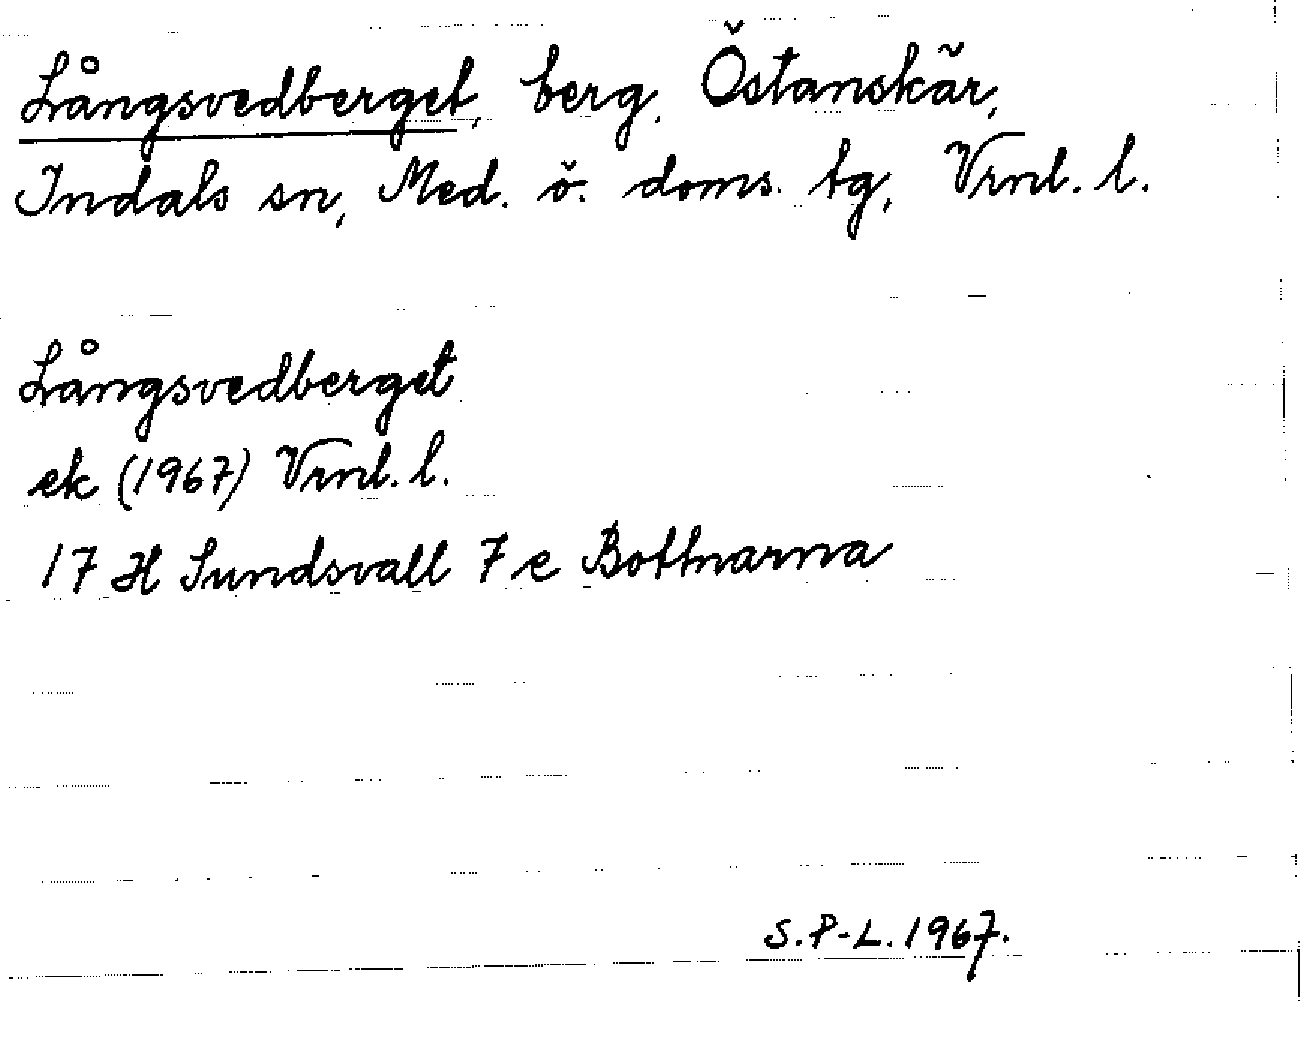 Långsvedberget, berg, Östanskär,
Indals sn, Med. ö. doms. tg, Vrnl. l.
Långsvedberget
ek (1967) Vrnl. l.
17 H Sundsvall 7 e Bottnarna
S.P-L. 1967.